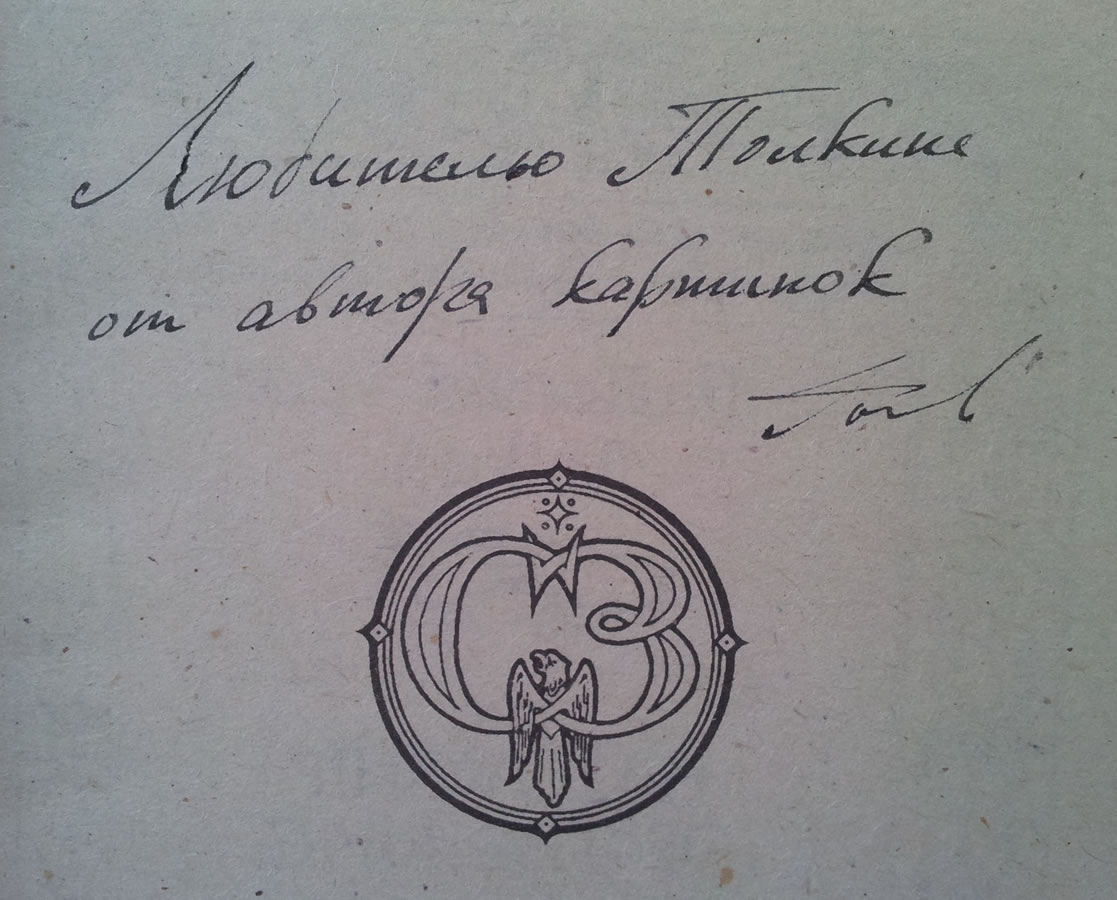 Любителю Толкина
от автора картинок
СВ